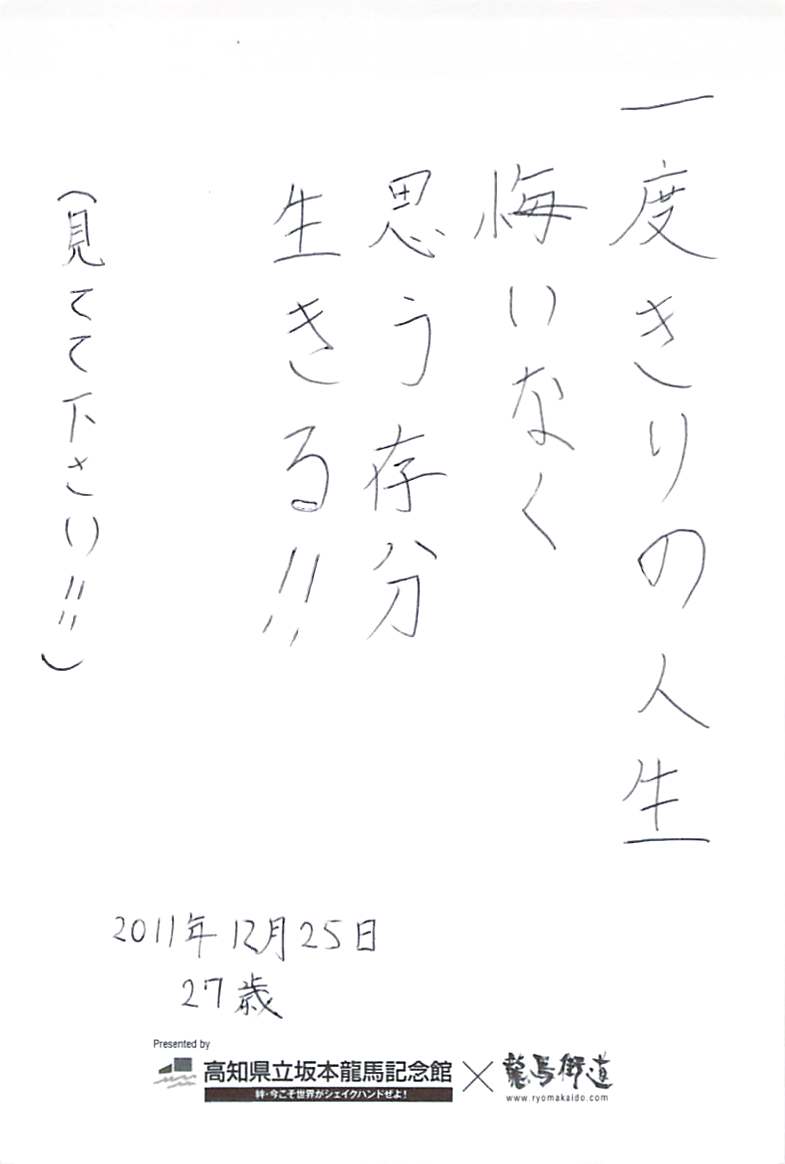 一度きりの人生
悔いなく
思う存分
生きる!!
(見てて下さい!!)
2011年12月25日
27歳
Presented by
高知県立坂本龍馬記念館
絆・今こそ世界がシェイクハンドぜよ!
×
龍馬街道
www.ryomakaido.com